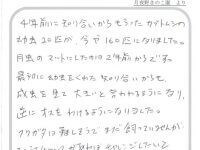 月夜野きのこ園 より
4年前に知り合いからもらったカブトムシの
幼虫20匹が、今や160匹になりました。
月虫のマットにしたのは2年前からです。
最初に幼虫をくれた知り合いからも、
成虫を見て大きいと言われるようになり、
逆にオスをわけるようになりました。
クワガタは難しそうでまだ飼っていませんが